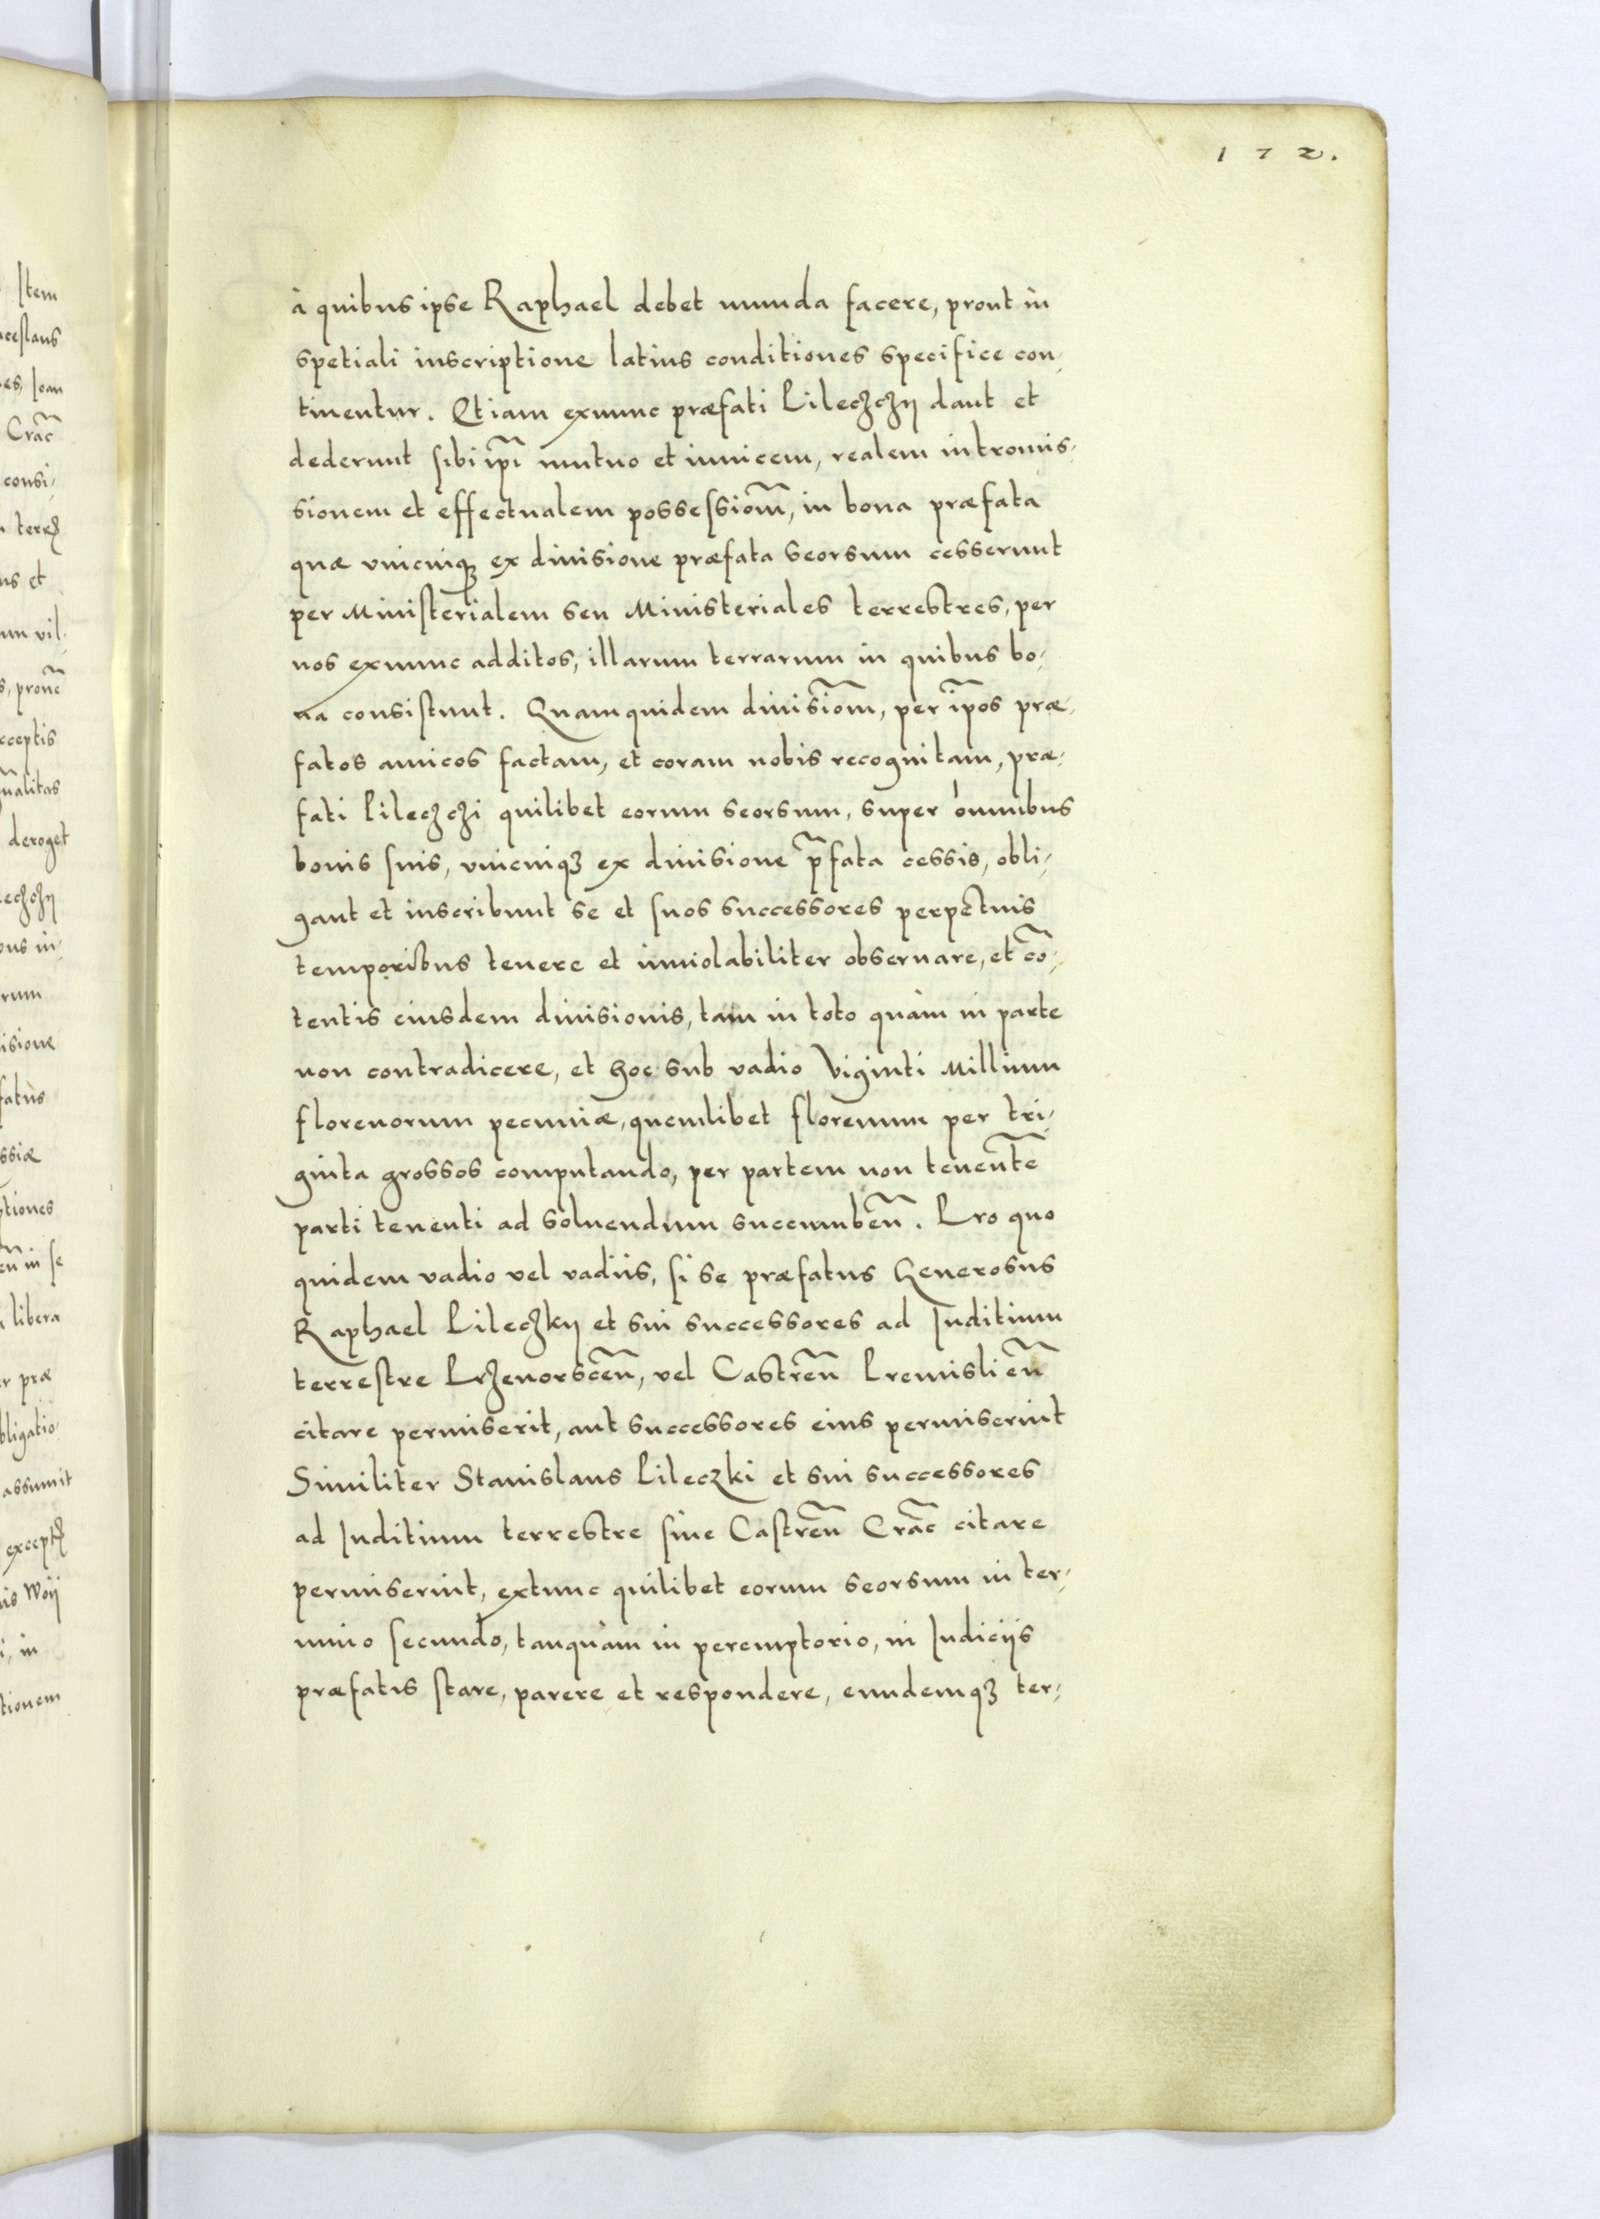 172.
à quibus ipse Raphael debet munda facere, prout in
spetiali inscriptione latius conditiones specifice con-
tinentur. Etiam exnunc præfati Pileczczÿ dant et
dederunt sibi ip̃i mutuo et inuicem, realem intromis-
sionem et effectualem possessiom̃, in bona præfata
quæ vnicuiqȝ ex diuisione præfata seorsum cesserunt
per Ministerialem seu Ministeriales terrestres, per
nos exnunc additos, illarum terrarum in quibus bo-
na consistunt. Quamquidem diuisiom̃, per ip̃os præ-
fatos amicos factam, et coram nobis recognitam, præ-
fati Pileczczi quilibet eorum seorsum, super omnibus
bonis suis, vnicuiqȝ ex diuisione p̃fata cessis, obli-
gant et inscribunt se et suos successores perpetuis
temporibus tenere et inuiolabiliter obseruare, et cõ-
tentis eiusdem diuisionis, tam in toto quàm in parte
non contradicere, et hoc sub vadio Viginti Millium
florenorum pecuniæ, quemlibet florenum per tri-
ginta grossos computando, per partem non tenente᷈
parti tenenti ad soluendum succumbeñ. Pro quo
quidem vadio vel vadiis, si se præfatus Generosus
Raphael Pileczkÿ et sui successores ad Iuditium
terrestre Przeuorsceñ, vel Castreñ Premislieñ
citare permiserit, aut successores eius permiserint
Similiter Stanislaus Pileczki et sui successores
ad Iuditium terrestre siue Castreñ Crac̃ citare
permiserint, extunc quilibet eorum seorsum in ter-
mino secundo, tanquàm in peremptorio, in Iudiciis
præfatis stare, parere et respondere, eundemqȝ ter-